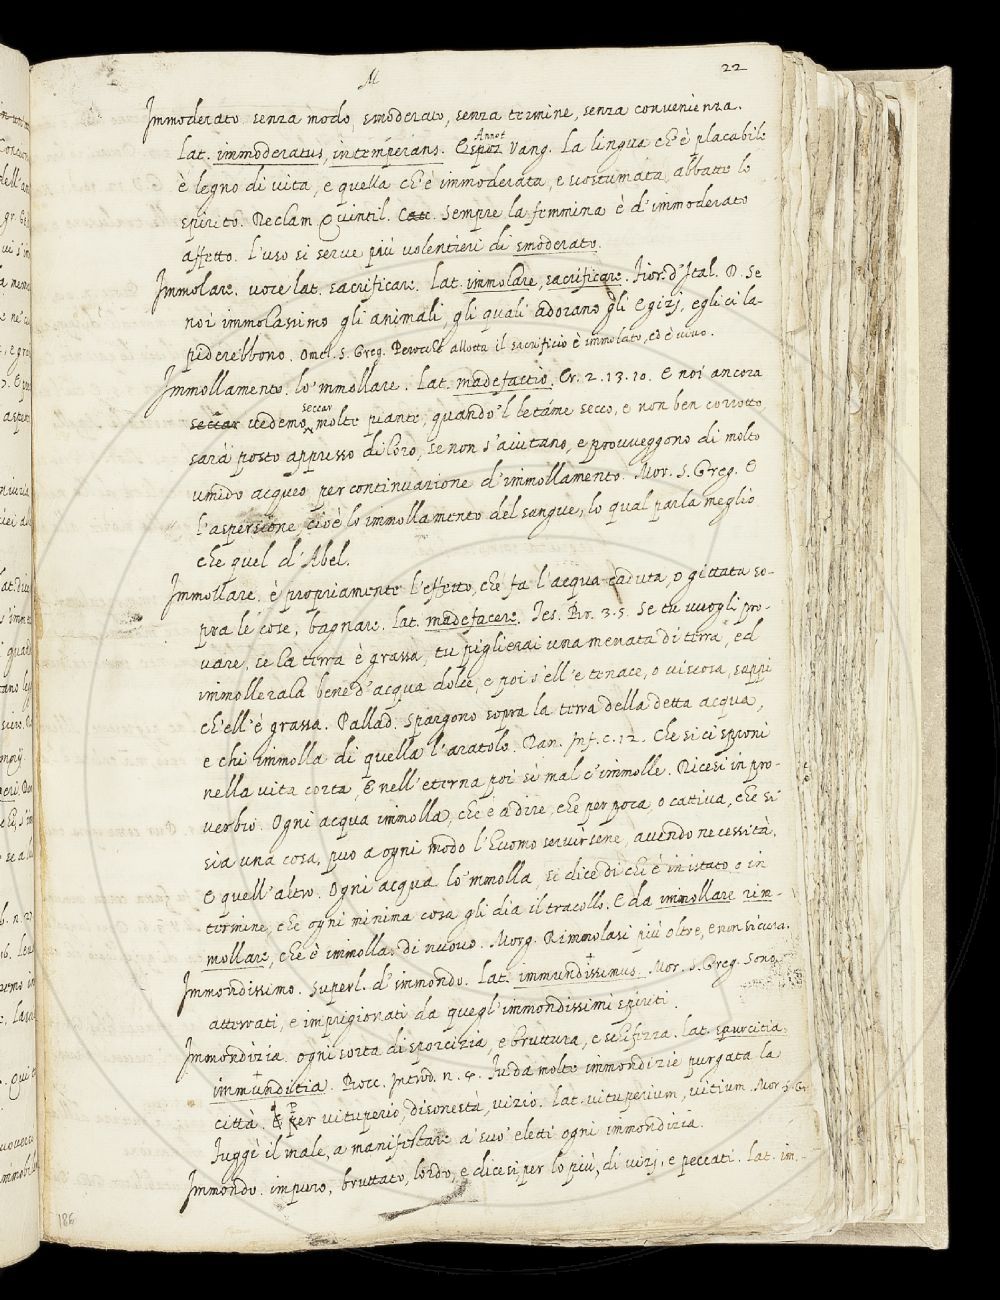 M
22
Immoderato. senza modo, smoderato, senza termine, senza convenienza.
Lat. immoderatus, intemperans. Annot. Vang. La lingua ch'è placabile
è legno di vita, e quella ch'è immoderata, e scostumata, abbatte lo
spirito. Declam. Quintil. Sempre la femmina è d'immoderato
affetto. L'uso si serve più volentieri di smoderato.
Immolare. voce lat. sacrificare. Lat. immolare, sacrificare. Fior. d'Ital. D. Se
noi immolassimo gli animali, gli quali adorano gli Egizj, egli ci la-
piderebbono. Omel. S. Greg. Perocchè allotta il sacrificio è immolato, ed è vivo.
Immollamento. lo 'mmollare. Lat. madefactio. Cr. 2. 13. 10. E noi ancora
seccar vedemo seccar molte piante, quando 'l letáme secco, e non ben corrotto
sarà posto appresso di loro, se non s'aiutano, e provveggono di molto
umido acqueo per continuazione d'immollamento. Mor. S. Greg. E
l'aspersione, cioè lo immollamento del sangue, lo qual parla meglio
che quel d'Abel.
Immollare. è propriamente l'effetto, che fa l'acqua caduta, o gittata so-
pra le cose, bagnare. Lat. madefacere. Tes. Br. 3. 5. Se tu vuogli pro-
vare, se la terra è grassa, tu piglierai una menata di terra, ed
immollerala bene d'acqua dolce, e poi s'ell'è tenace, o viscosa, sappi
ch'ell'è grassa. Pallad. Spargono sopra la terra della detta acqua,
e chi immolla di quella l'aratolo. Dan. Inf. c. 12. Che sì ci sproni
nella vita corta, E nell'eterna poi sì mal c'immolle. Dicesi in pro-
verbio. Ogni acqua immolla, che è a dire, che per poca, o cativa, che si
sia una cosa, può a ogni modo l'huomo servirsene, avendo necessità.
E quell'altro. Ogni acqua lo 'mmolla, si dice di chi è in istato, o in
termine, che ogni minima cosa gli dia il tracollo. E da immollare rim-
mollare, che è immollar di nuovo. Morg. Rimmolasi più oltre, e non si cura.
Immondissimo. Superl. d'immondo. Lat. immundissimus. Mor. S. Greg. Sono
atterrati, e imprigionati da quegl'immondissimi spiriti.
Immondizia. ogni sorta di sporcizia, e bruttura, e schifezza. Lat. spurcitia,
immunditia. Bocc. Introd. n. 4. Fu da molte immondizie purgata la
città. Per vituperio, disonestà, vizio. Lat. vituperium, vitium. Mor. S. Gr.
Fuggì il male, a manifestare a' suo' eletti ogni immondizia.
Immondo. impuro, bruttato, lordo, e dicesi, per lo più, di vizj, e peccati. Lat. im-
186